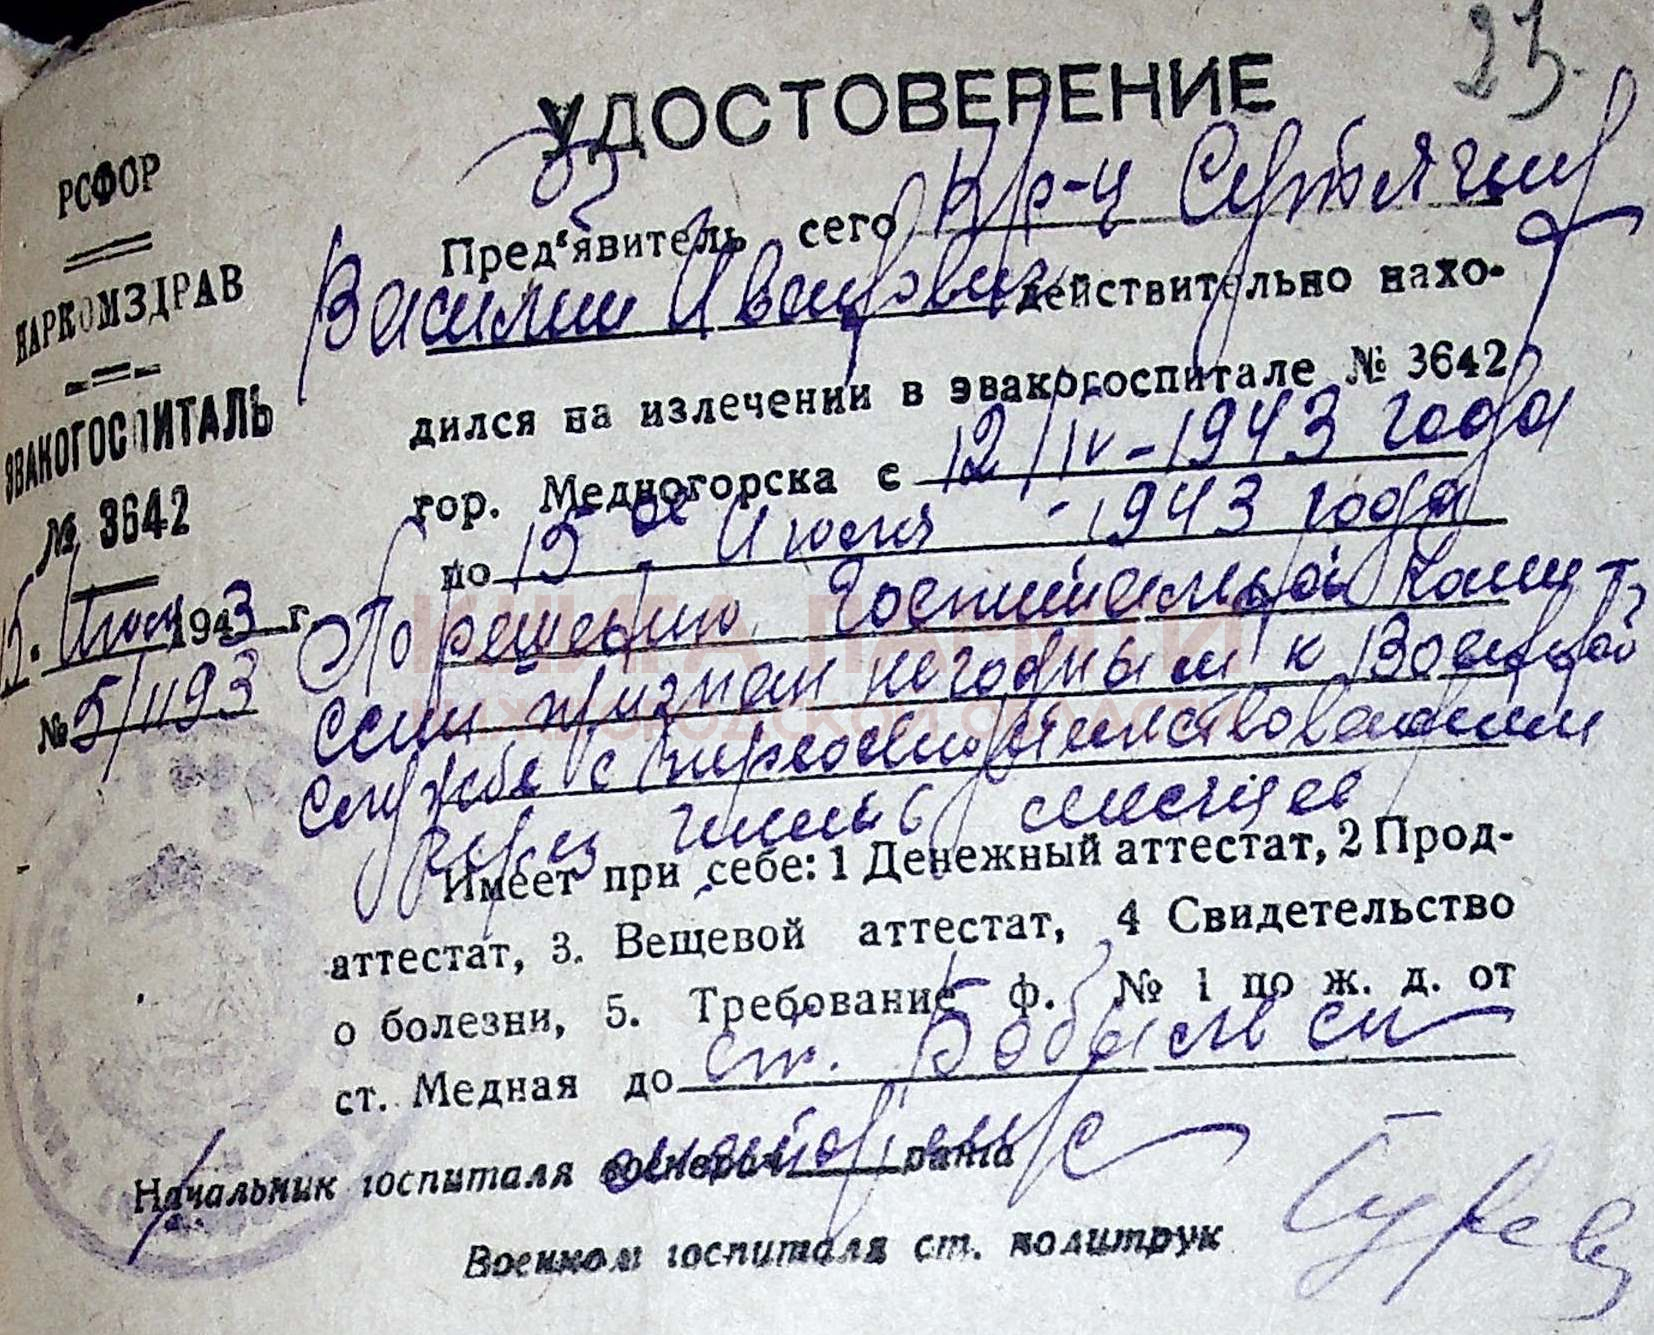 23
УДОСТОВЕРЕНИЕ
РСФСР
НАРКОМЗДРАВ
ЭВАКОГОСПИТАЛЬ
№ 3642
15. Июля 1943 г.
№ 5/1193
Пред‘явитель сего Кр-ц Сутягин
Василий Иванович действительно нахо-
дился на излечении в эвакогоспитале № 3642
гор. Медногорска с 12/IV-1943 года
по 15 Июля - 1943 года
По решению Госпитальной Комис
сии признан негодным к Военной
службе с переосвидетельствованием
через шесть месяцев
Имеет при себе: 1 Денежный аттестат, 2 Прод-
аттестат, 3. Вещевой аттестат, 4 Свидетельство
о болезни, 5. Требование ф. № 1 по ж. д. от
ст. Медная до ст. Бобыльск
Начальник госпиталя
Военком госпиталя ст. политрук
КНИГА ПАМЯТИ
НИЖЕГОРОДСКОЙ ОБЛАСТИ